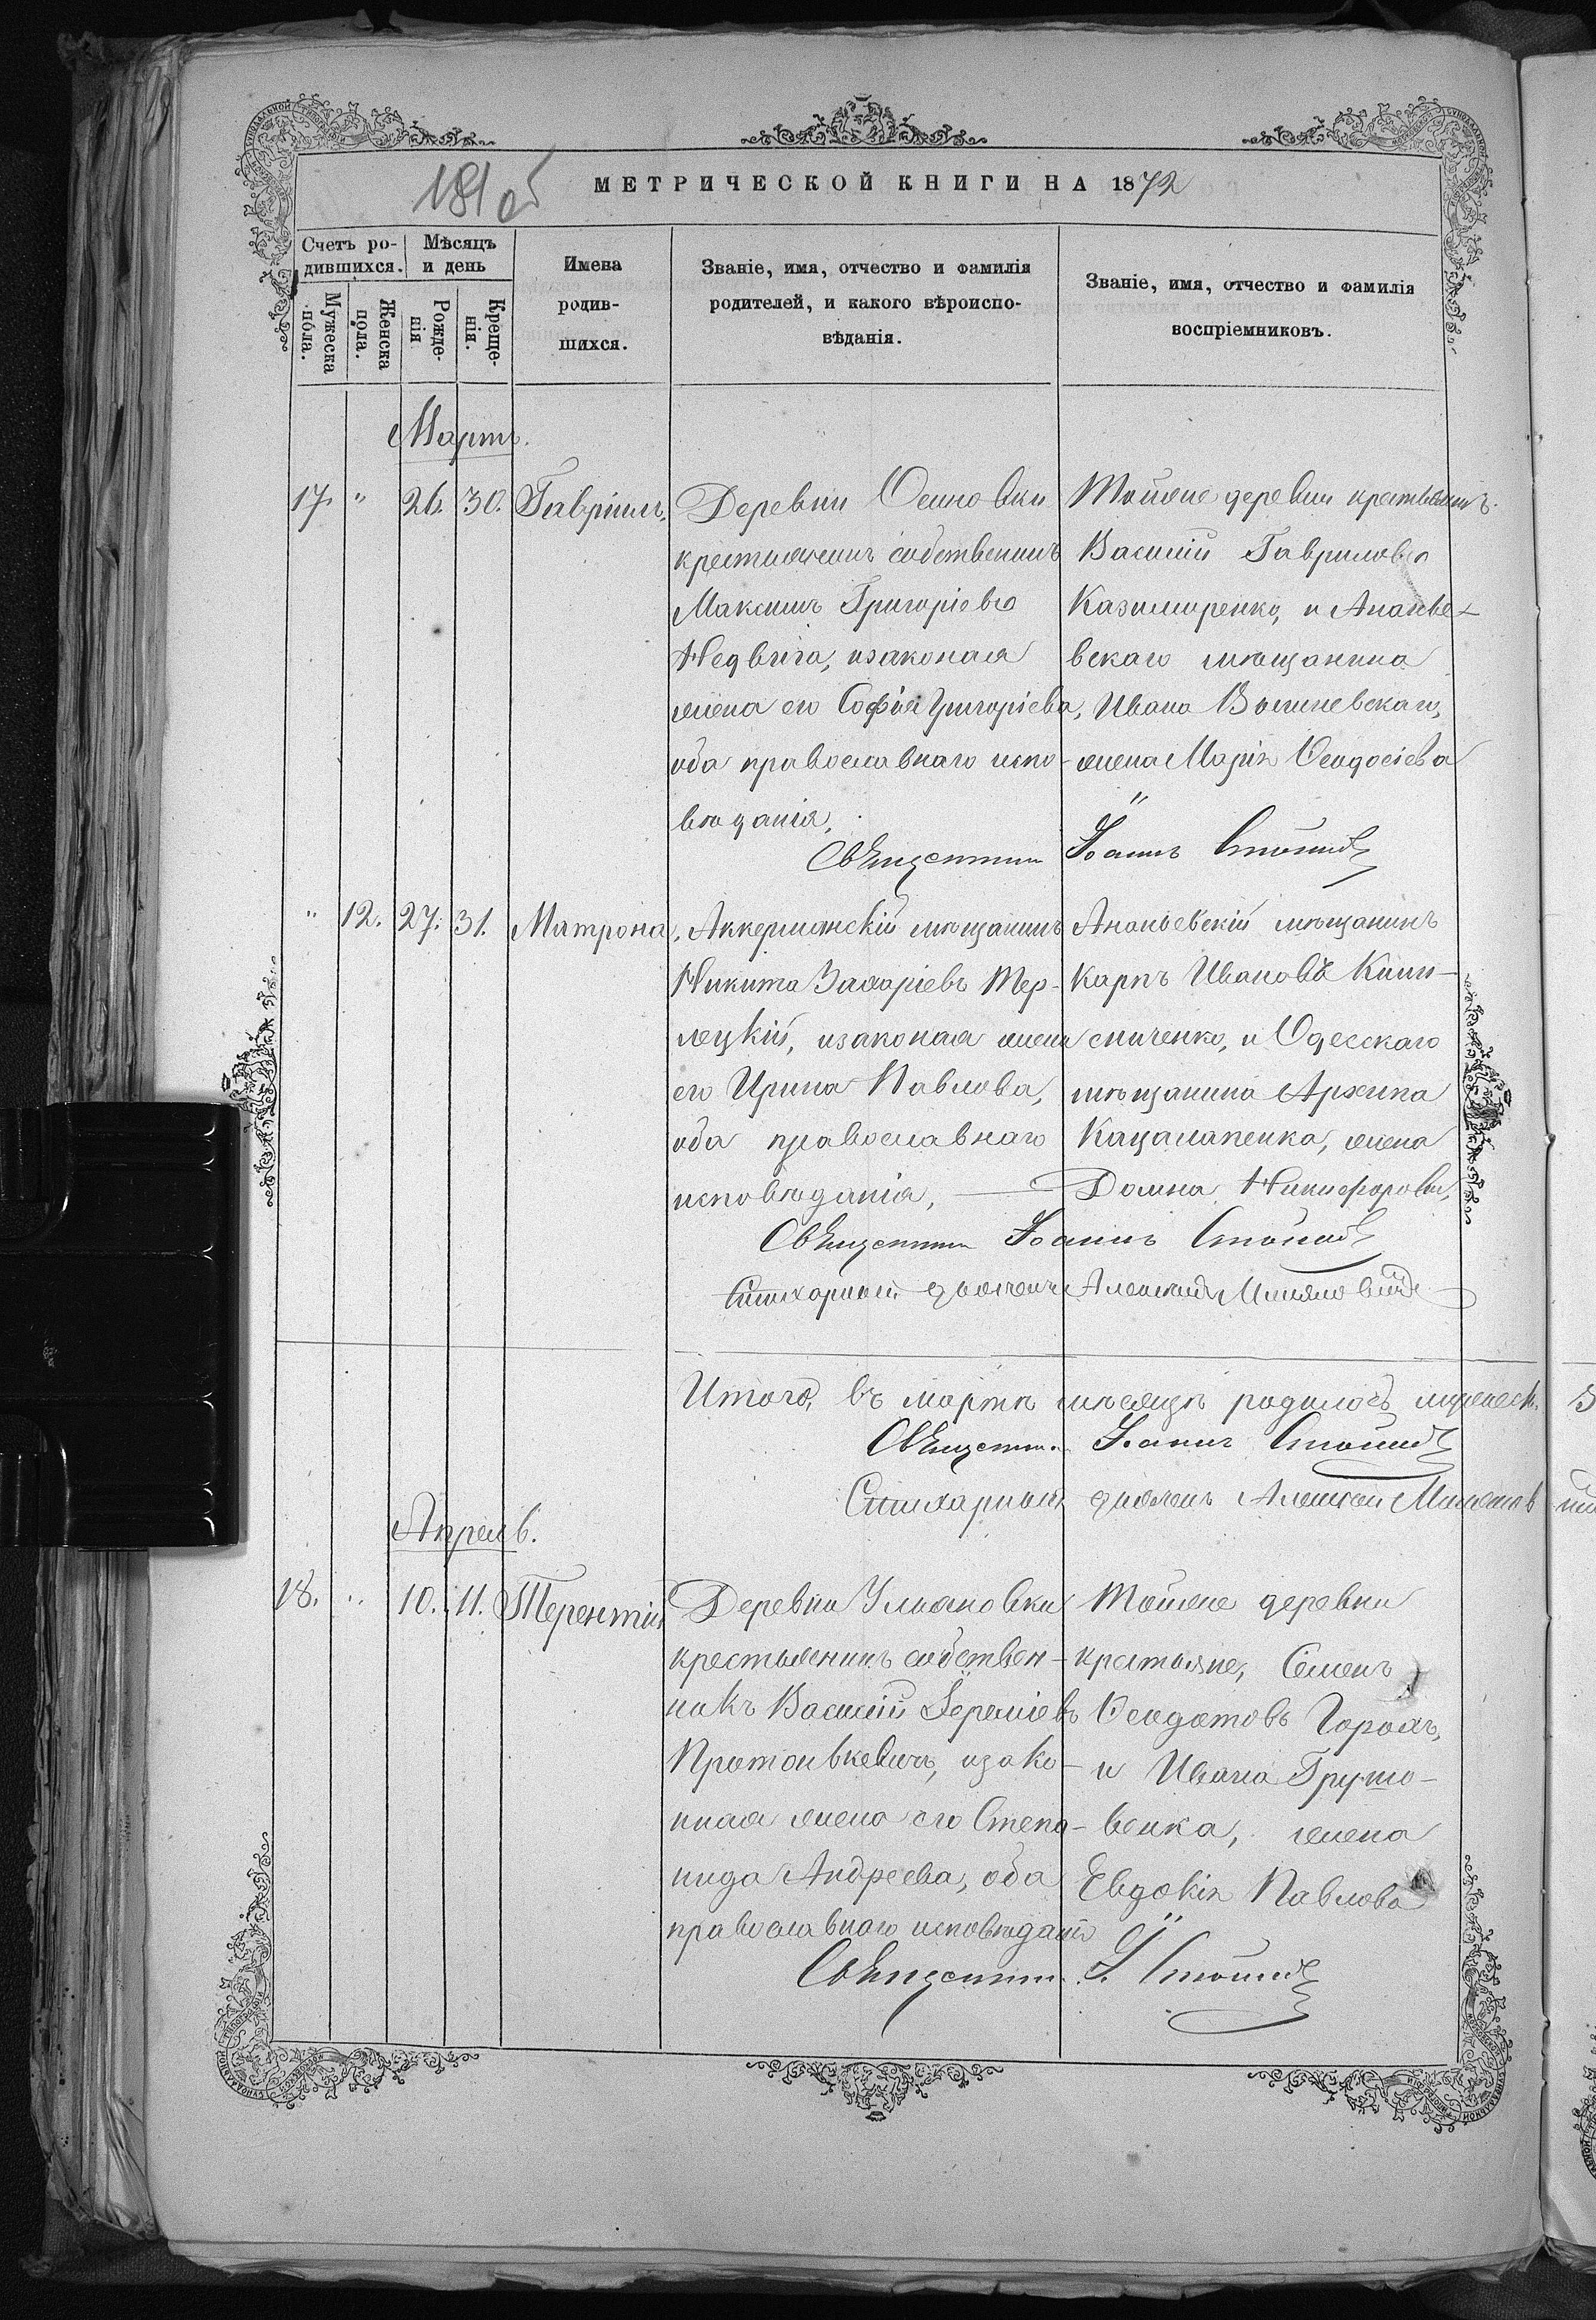 181 об
МЕТРИЧЕСКОЙ КНИГИ НА 1872
Счетъ родившихся.
Мужеска пола.
Женска пола.
Мѣсяцъ и день
Рожденія
Крещенія.
Имена родившихся.
Званіе, имя, отчество и фамилія
родителей, и какого вѣроиспо-
вѣданія.
Званіе, имя, отчество и фамилія
воспріемниковъ.
Мартъ.
17. " 26. 30. Гавріилъ.
Деревни Осиновки
крестьянинъ собственникъ
Максимъ Григоріевъ
Недвига, изаконая
жена его Софія Григоріева,
оба православнаго испо-
вѣданія,
Тойже деревни крестьянинъ
Василій Гавриловъ
Казимиренко, и Ананье-
вскаго мѣщанина
Ивана Вишневскаго,
жена Марія Ѳеодосіева
Священникъ Іоаннъ
" 12. 27. 31. Матрона,
Аккерманскій мѣщанинъ
Никита Захаріевъ Тер-
лецкій, изаконая жена
его Ирина Павлова,
оба православнаго
исповѣданія,
Ананьевскій мѣщанинъ
Карпъ Ивановъ
и Одесскаго
мѣщанина Архипа
Кацалапенка, жена
Домна Никифорова,
Священникъ Іоаннъ
Стихарный дьячекъ
Итого, въ мартѣ мѣсяцѣ родилось мужеск.
Священн. Іоаннъ
Стихарный дьячекъ Алексей
Апрель.
18. " 10. 11. Терентій
Деревни Ульяновки
крестьянинъ собствен-
никъ Василій Іереміевъ
изако-
нная жена его Степа-
нида Андреева, оба
православнаго исповѣданія
Тойже деревни
крестьяне, Семенъ
Ѳеодотовъ Горохъ,
и Ивана Грушо-
венка, жена
Евдокія Павлова
Священникъ І.